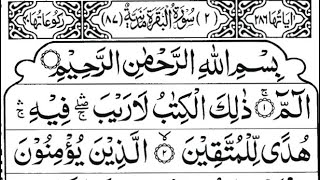 اٰیَاتُهَا ۲۸۶ (۲) سُوْرَةُ الْبَقَرَةِ مَدَنِیَّةٌ (۸۷) رُكُوْعَاتُهَا ۴۰
بِسْمِ اللهِ الرَّحْمٰنِ الرَّحِیْمِ
الٓمّٓ ۚ۝۱ ذٰلِكَ الْكِتٰبُ لَا رَیْبَ ۛۖ فِیْهِ ۛۚ
هُدًی لِّلْمُتَّقِیْنَ ۝۲ الَّذِیْنَ یُؤْمِنُوْنَ